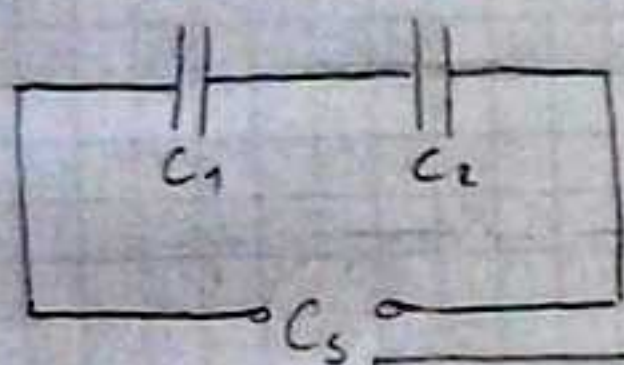 C₁ C₂
Cₛ